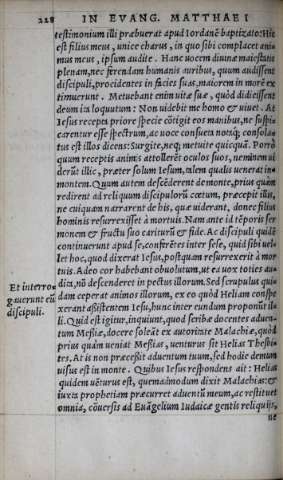 228 IN EVANG. MATTHAEI
testimonium illi præbuerat apud Iordanē baptizato: Hic
est filius meus, unice charus, in quo sibi complacet ani-
mus meus, ipsum audite. Hanc uocem diuinæ maiestatis
plenam, nec ferendam humanis auribus, quum audissent
discipuli, procidentes in facies suas, maiorem in modū ex
timuerunt. Metuebant enim uitæ suæ, quòd didicissent
deum ita loquutum: Non uidebit me homo & uiuet. At
Iesus recepta priore specie cōtigit eos manibus, ne suspi-
carentur esse spectrum, ac uoce consueta notáq; consola-
tus est illos dicens: Surgite, neq; metuite quicquā. Porrò
quum receptis animis attollerēt oculos suos, neminem ui
derūt illic, præter solum Iesum, talem qualis uenerat in
montem. Quum autem descēderent de monte, prius quàm
redirent ad reliquum discipulorū cœtum, præcepit illis,
ne cuiquam narrarent de his, quæ uiderant, donec filius
hominis resurrexisset à mortuis. Nam ante id tēporis ser
monem & fructu suo cariturū & fide. Ac discipuli quidē
continuerunt apud se, conferētes inter sese, quid sibi uel-
let hoc, quod dixerat Iesus, postquam resurrexerit à mor
tuis. Adeo cor habebant obuolutum, ut ea uox toties au-
dita, nō descenderet in pectus illorum. Sed scrupulus qui-
dam ceperat animos illorum, ex eo quòd Heliam conspe
xerant assistentem Iesu, hunc inter eundum proponūt il-
li. Quid est igitur, inquiunt, quod scribæ docentes aduen-
tum Messiæ, docere soleāt ex autoritate Malachiæ, quòd
prius quàm ueniat Messias, uenturus sit Helias Thesbi-
tes. At is non præcessit aduentum tuum, sed hodie demum
uisus est in monte. Quibus Iesus respondens ait: Helias
quidem uēturus est, quemadmodum dixit Malachias: &
iuxta prophetiam præcurret aduentū meum, ac restituet
omnia, cōuersis ad Euāgelium Iudaicæ gentis reliquijs,
ne
Et interro-
gauerunt eū
discipuli.